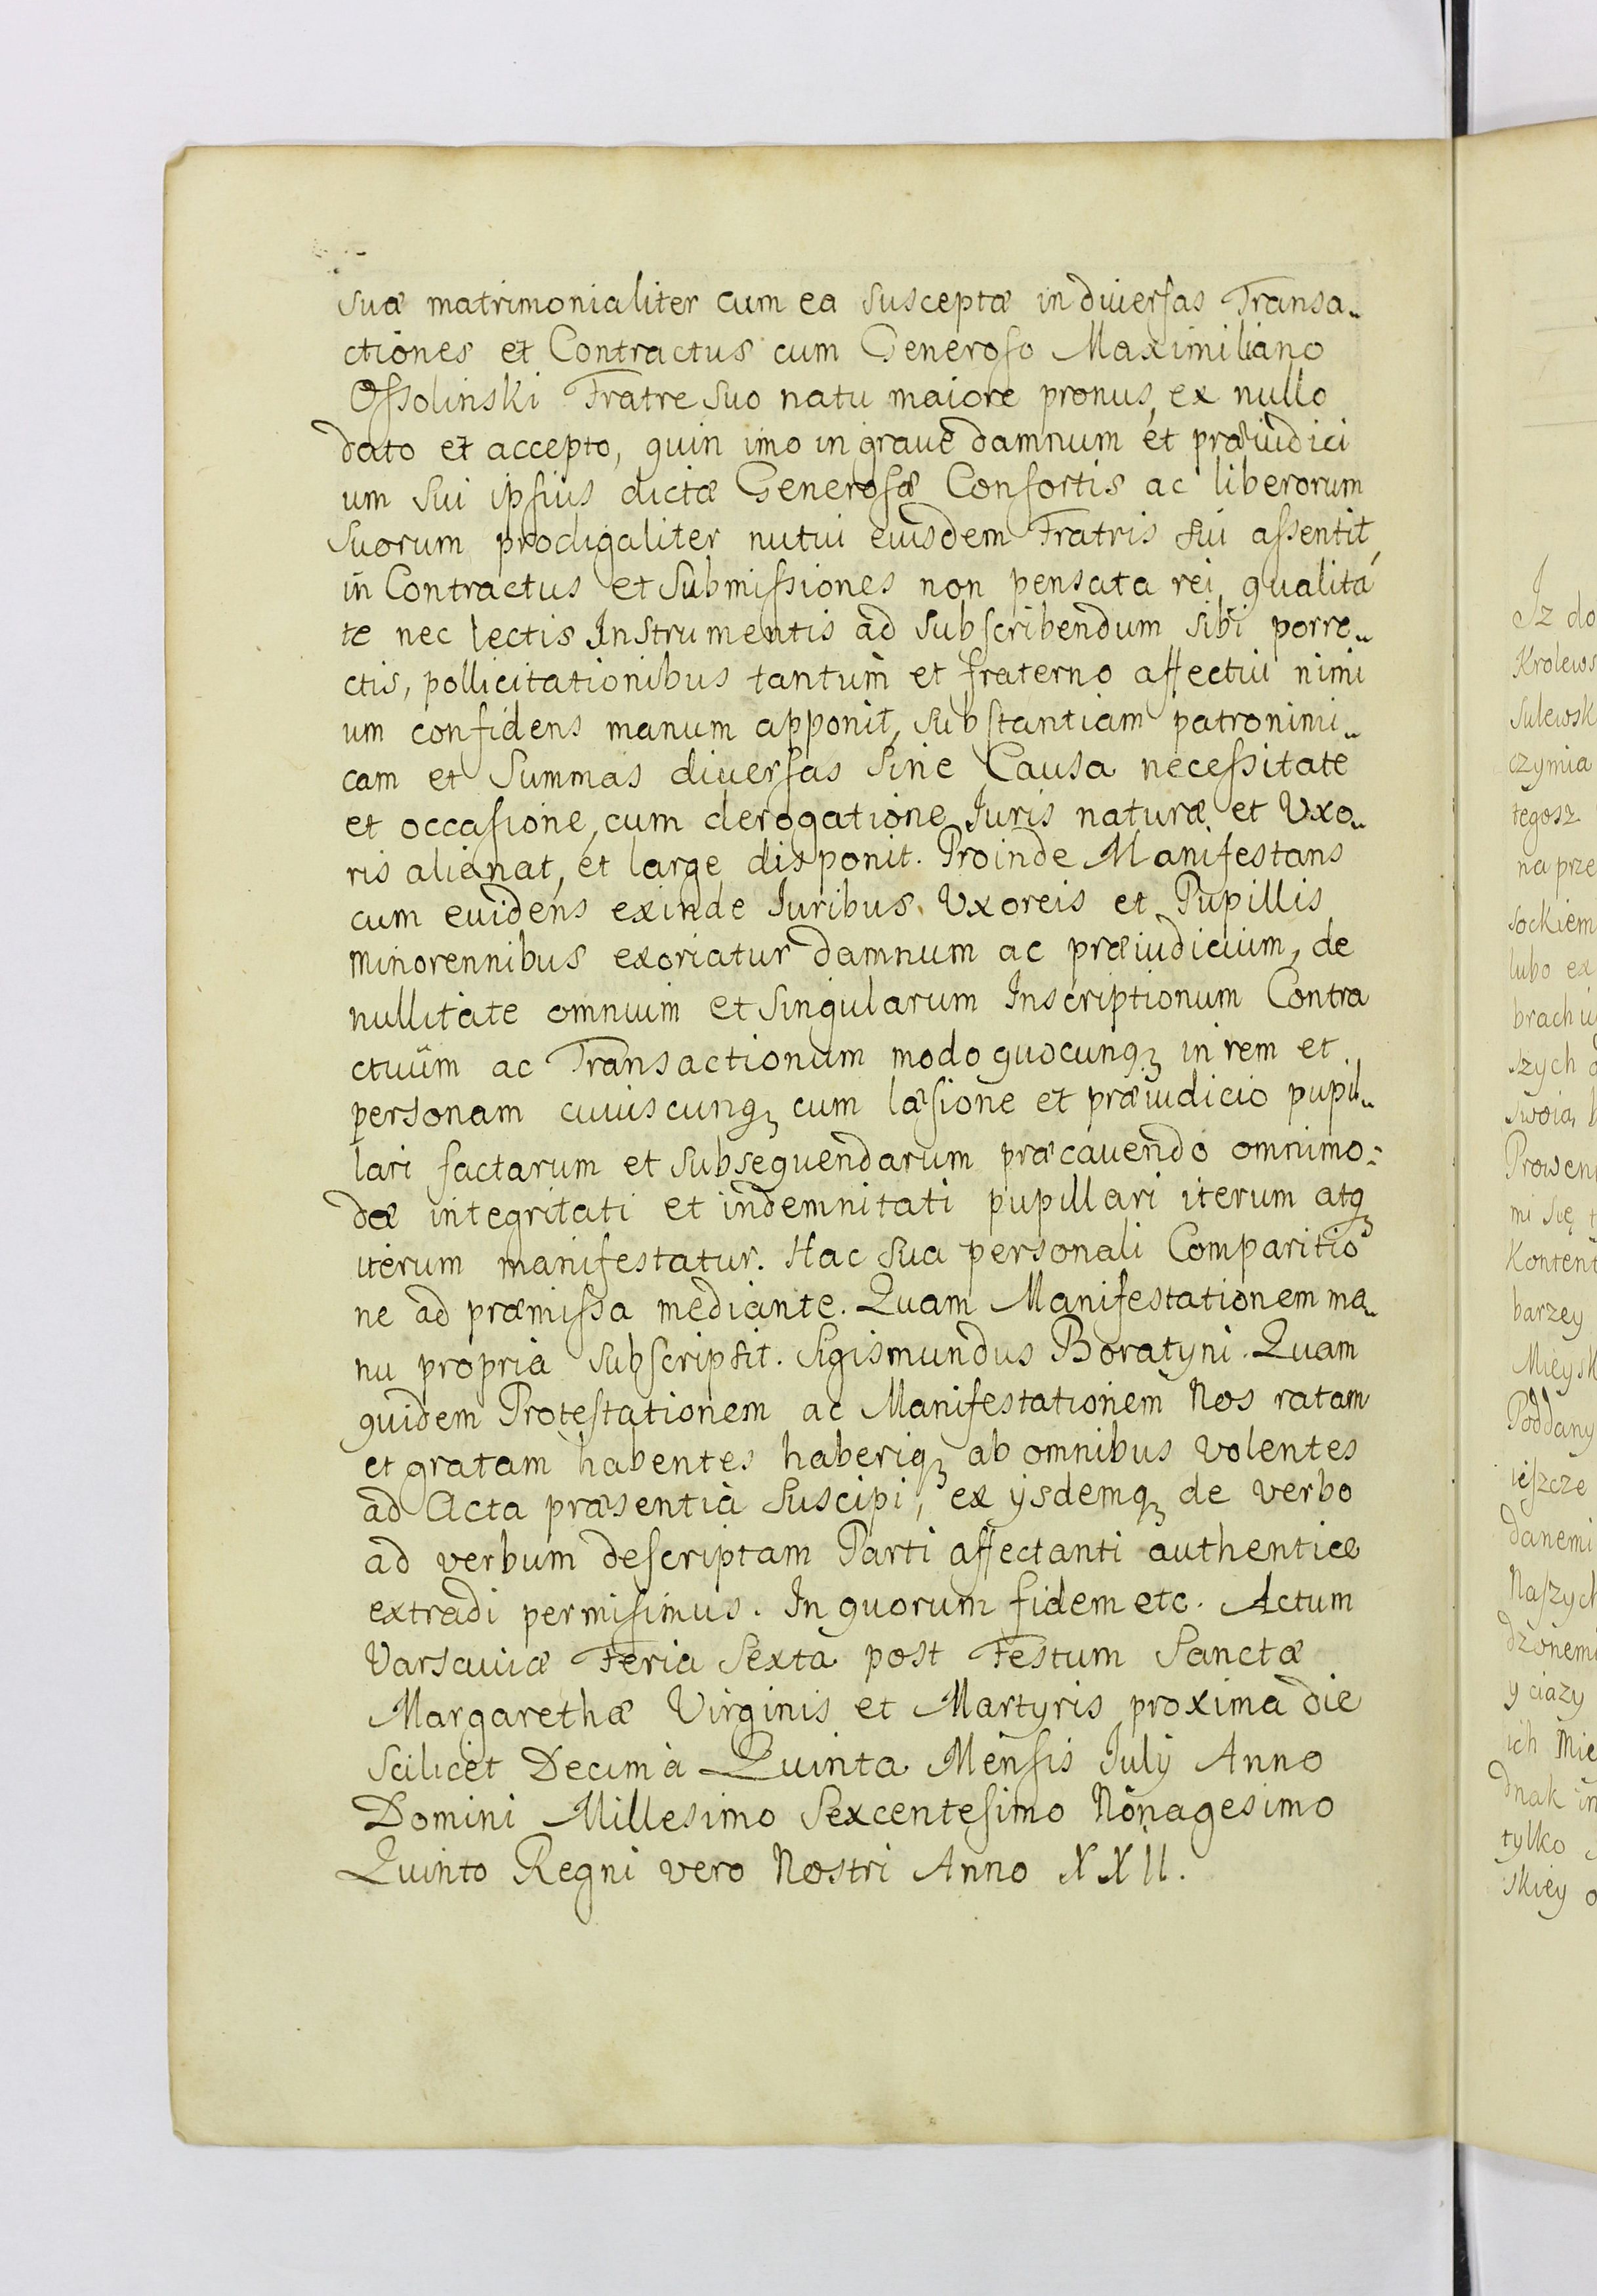 suæ matrimonialiter cum ea susceptæ in diuersas Transa„
ctiones et Contractus cum Generoso Maximiliano
Ossolinski Fratre suo natu maiore pronus, ex nullo
dato et accepto, quin imo in graue damnum et præiudici
um sui ipsius dictæ Generosæ Consortis ac liberorum
suorum prodigaliter nutui eiusdem Fratris sui assentit,
in Contractus et submissiones non pensata rei qualita
te nec lectis Instrumentis ad subscribendum sibi porre„
ctis, pollicitationibus tantum et fraterno affectui nimi
um confidens manum apponit, substantiam patronimi„
cam et Summas diuersas sine Causa necessitate
et occasione, cum derogatione Iuris naturæ et Uxo„
ris alienat, et large disponit. Proinde Manifestans
cum euidens exinde Iuribus Uxoreis et Pupillis
minorennibus exoriatur damnum ac præiudicium, de
nullitate omnium et singularum Inscriptionum Contra
ctuum ac Transactionum modo quocunqꝫ in rem et
personam cuiuscunqꝫ cum læsione et præiudicio pupil„
lari factarum et subsequendarum præcauendo omnimo:
dæ integritati et indemnitati pupillari iterum atqꝫ
iterum manifestatur. Hac sua personali Comparitio
ne ad præmissa mediante. Quam Manifestationem ma„
nu propria subscripsit. Sigismundus Boratyni. Quam
quidem Protestationem ac Manifestationem Nos ratam
et gratam habentes haberiqꝫ ab omnibus volentes
ad Acta præsentia suscipi, ex ijsdemqꝫ de verbo
ad verbum descriptam Parti affectanti authentice
extradi permisimus. In quorum fidem etc. Actum
Varsauiæ Feria Sexta post Festum Sanctæ
Margarethæ Virginis et Martyris proxima die
scilicet Decima Quinta Mensis Iulij Anno
Domini Millesimo Sexcentesimo Nonagesimo
Quinto Regni vero Nostri Anno XXII.
Iz do
Krolews
Sulewsk
czymia
tegosz
na prze
sockiem
lubo ex
brachi
szych
swoia
Prowen
mi się
Kontent
barzey
Mieysk
Poddany
ieszcze
danemi
Naszych
dzonemi
y ciazy
ich Mie
dnak in
tylko
skiey